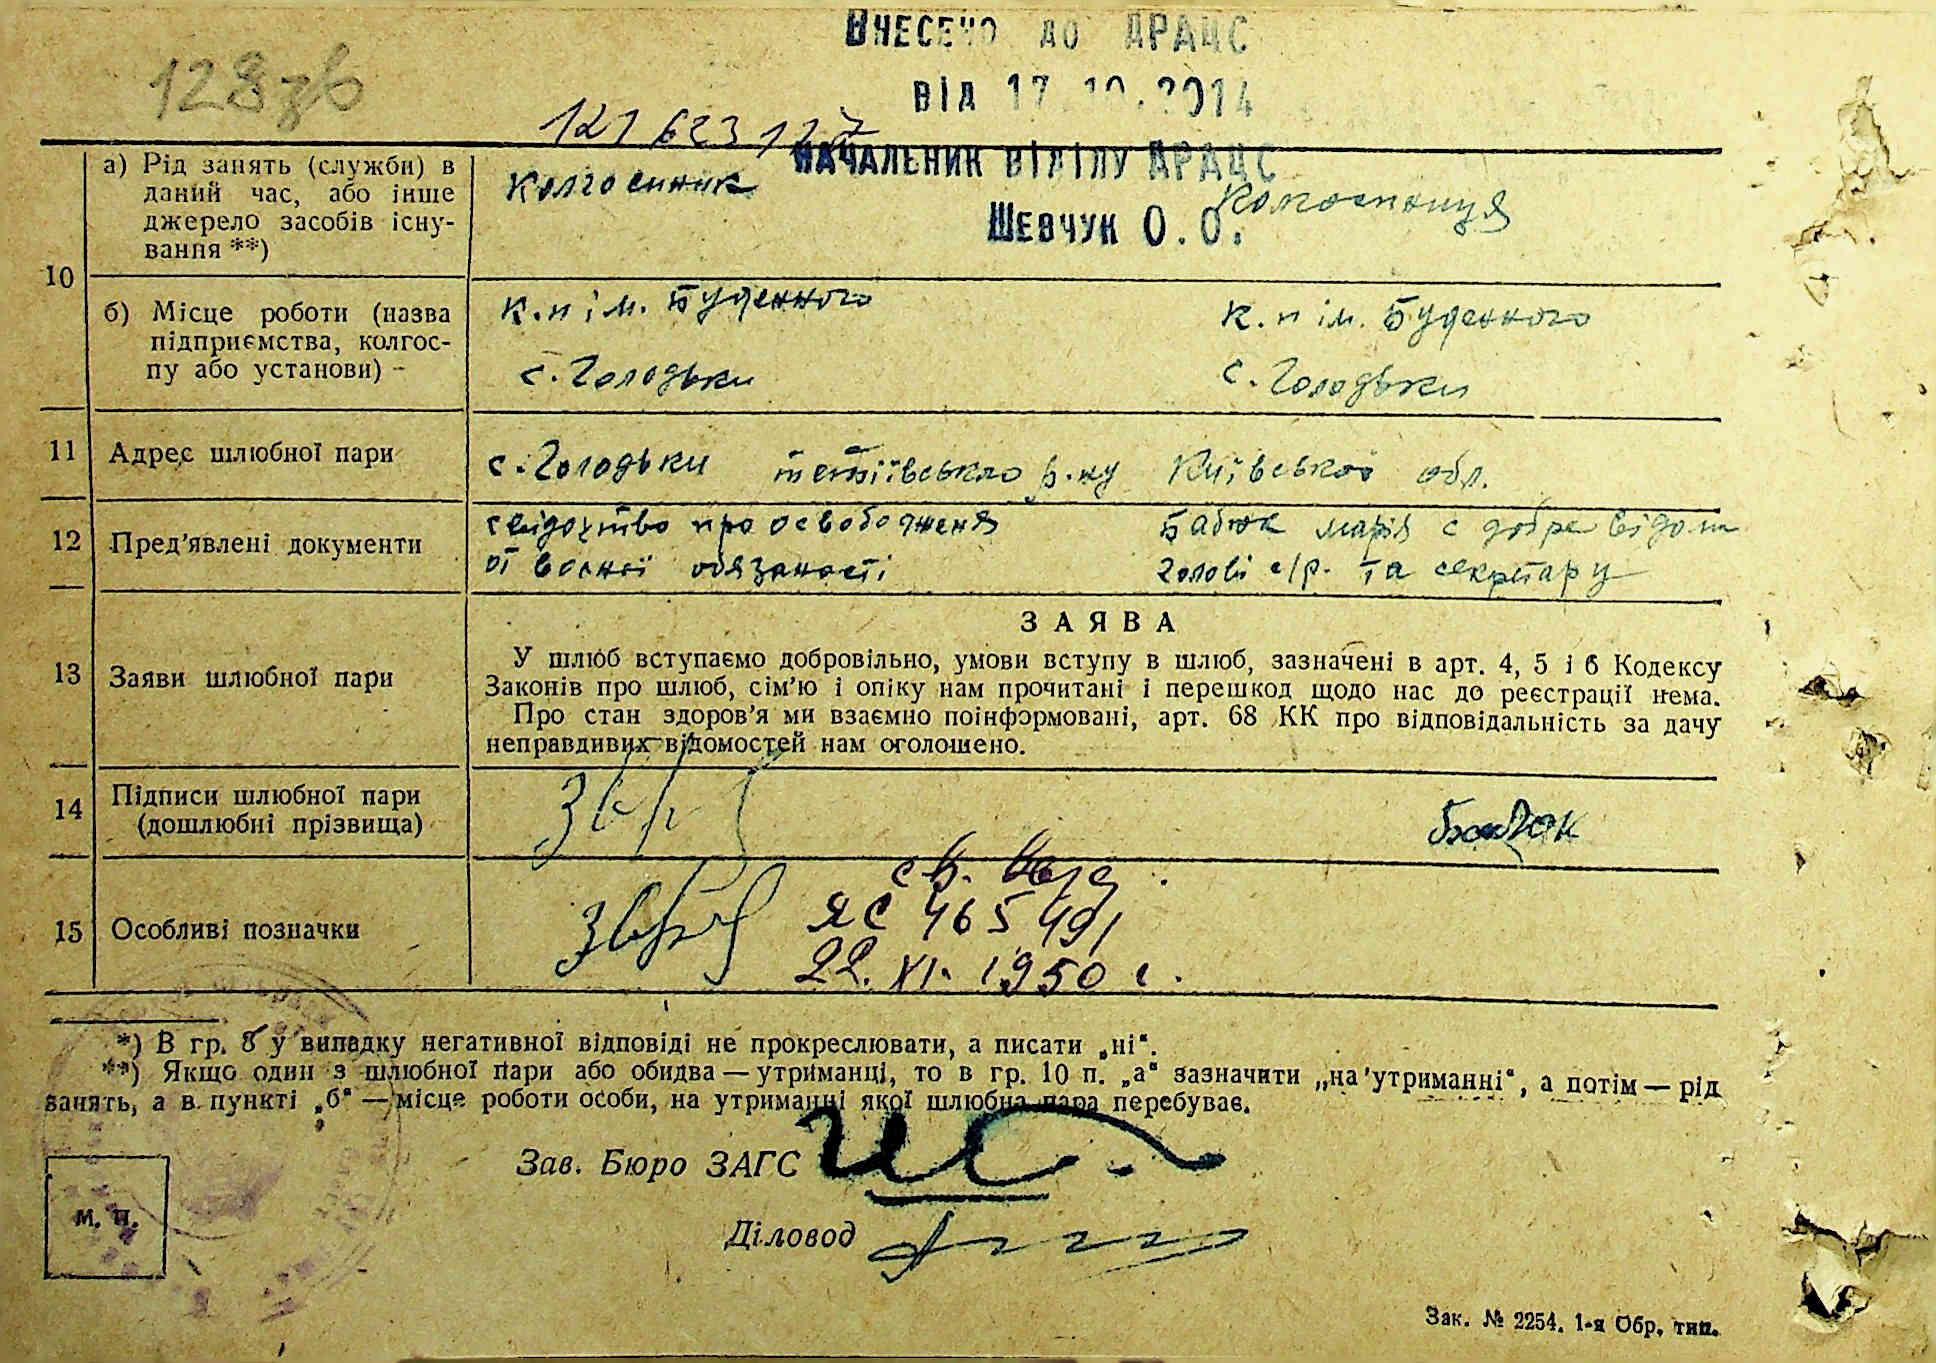 128 зв
Внесено до ДРАЦС
від 17.10.2014
121623127
Начальник відділу ДРАЦС
Шевчук О.О.
10
а) Рід занять (служби) в
даний час, або інше
джерело засобів існу-
вання **)
колгоспник
колгоспниця
б) Місце роботи (назва
підприємства, колгос-
пу або установи) -
к.п ім. Буденного
с. Голодьки
к.п ім. Буденного
с. Голодьки
11 Адрес шлюбної пари
с. Голодьки тетіївського р-ну Київської обл.
12 Пред'явлені документи
свідоцтво про освобождення
от воєнної обязаності
Бабюк марія є добре відома
голові с/р. та секретару
13 Заяви шлюбної пари
ЗАЯВА
У шлюб вступаємо добровільно, умови вступу в шлюб, зазначені в арт. 4, 5 і 6 Кодексу
Законів про шлюб, сім'ю і опіку нам прочитані і перешкод щодо нас до реєстрації нема.
Про стан здоров'я ми взаємно поінформовані, арт. 68 КК про відповідальність за дачу
неправдивих відомостей нам оголошено.
14 Підписи шлюбної пари
(дошлюбні прізвища)
Бабюк
15 Особливі позначки
св. выд.
ЯС 465491
22.XI.1950 г.
*) В гр. 8 у випадку негативної відповіді не прокреслювати, а писати „ні“.
**) Якщо один з шлюбної пари або обидва — утриманці, то в гр. 10 п. „а“ зазначити „на утриманні“, а потім — рід
занять, а в пункті „б“ — місце роботи особи, на утриманні якої шлюбна пара перебуває.
Зав. Бюро ЗАГС
Діловод
М. П.
Зак. № 2254. 1-я Обр. тип.